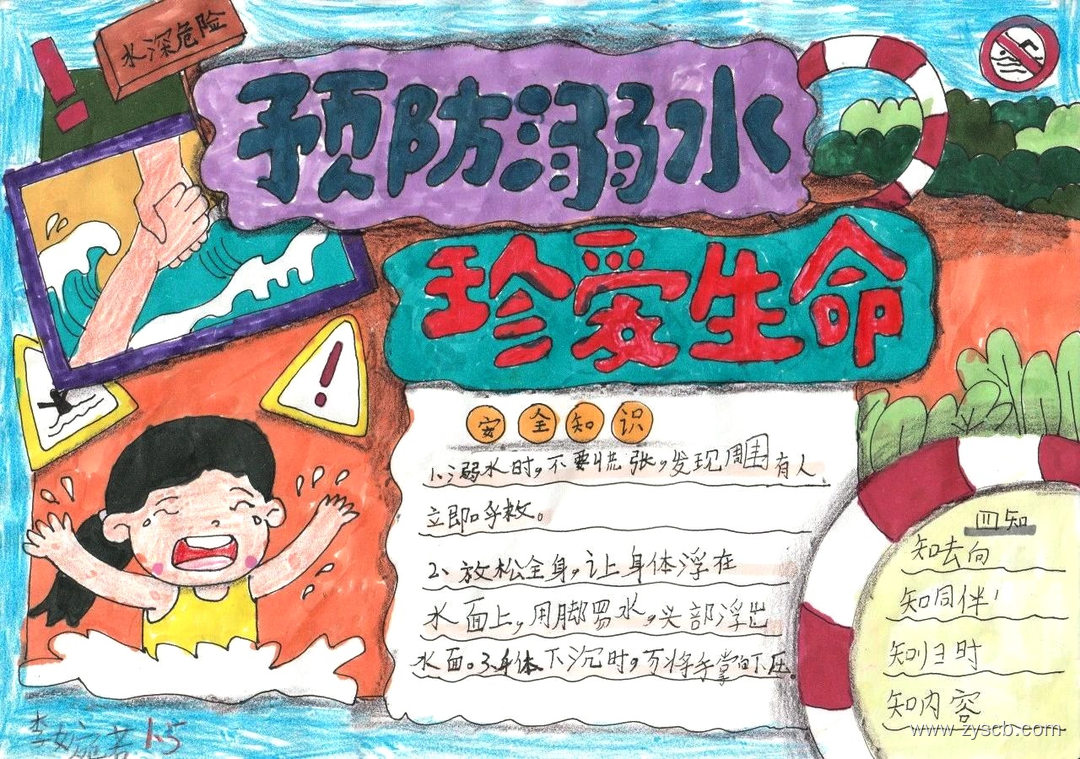 水深危险
预防溺水
珍爱生命
安全知识
1、溺水时,不要慌张,发现周围有人
立即呼救。
2、放松全身,让身体浮在
水面上,用脚踢水,头部浮出
水面。3、身体下沉时,可将手掌向下压。
四知
知去向
知同伴
知归时
知内容
1.5
www.zyscb.com